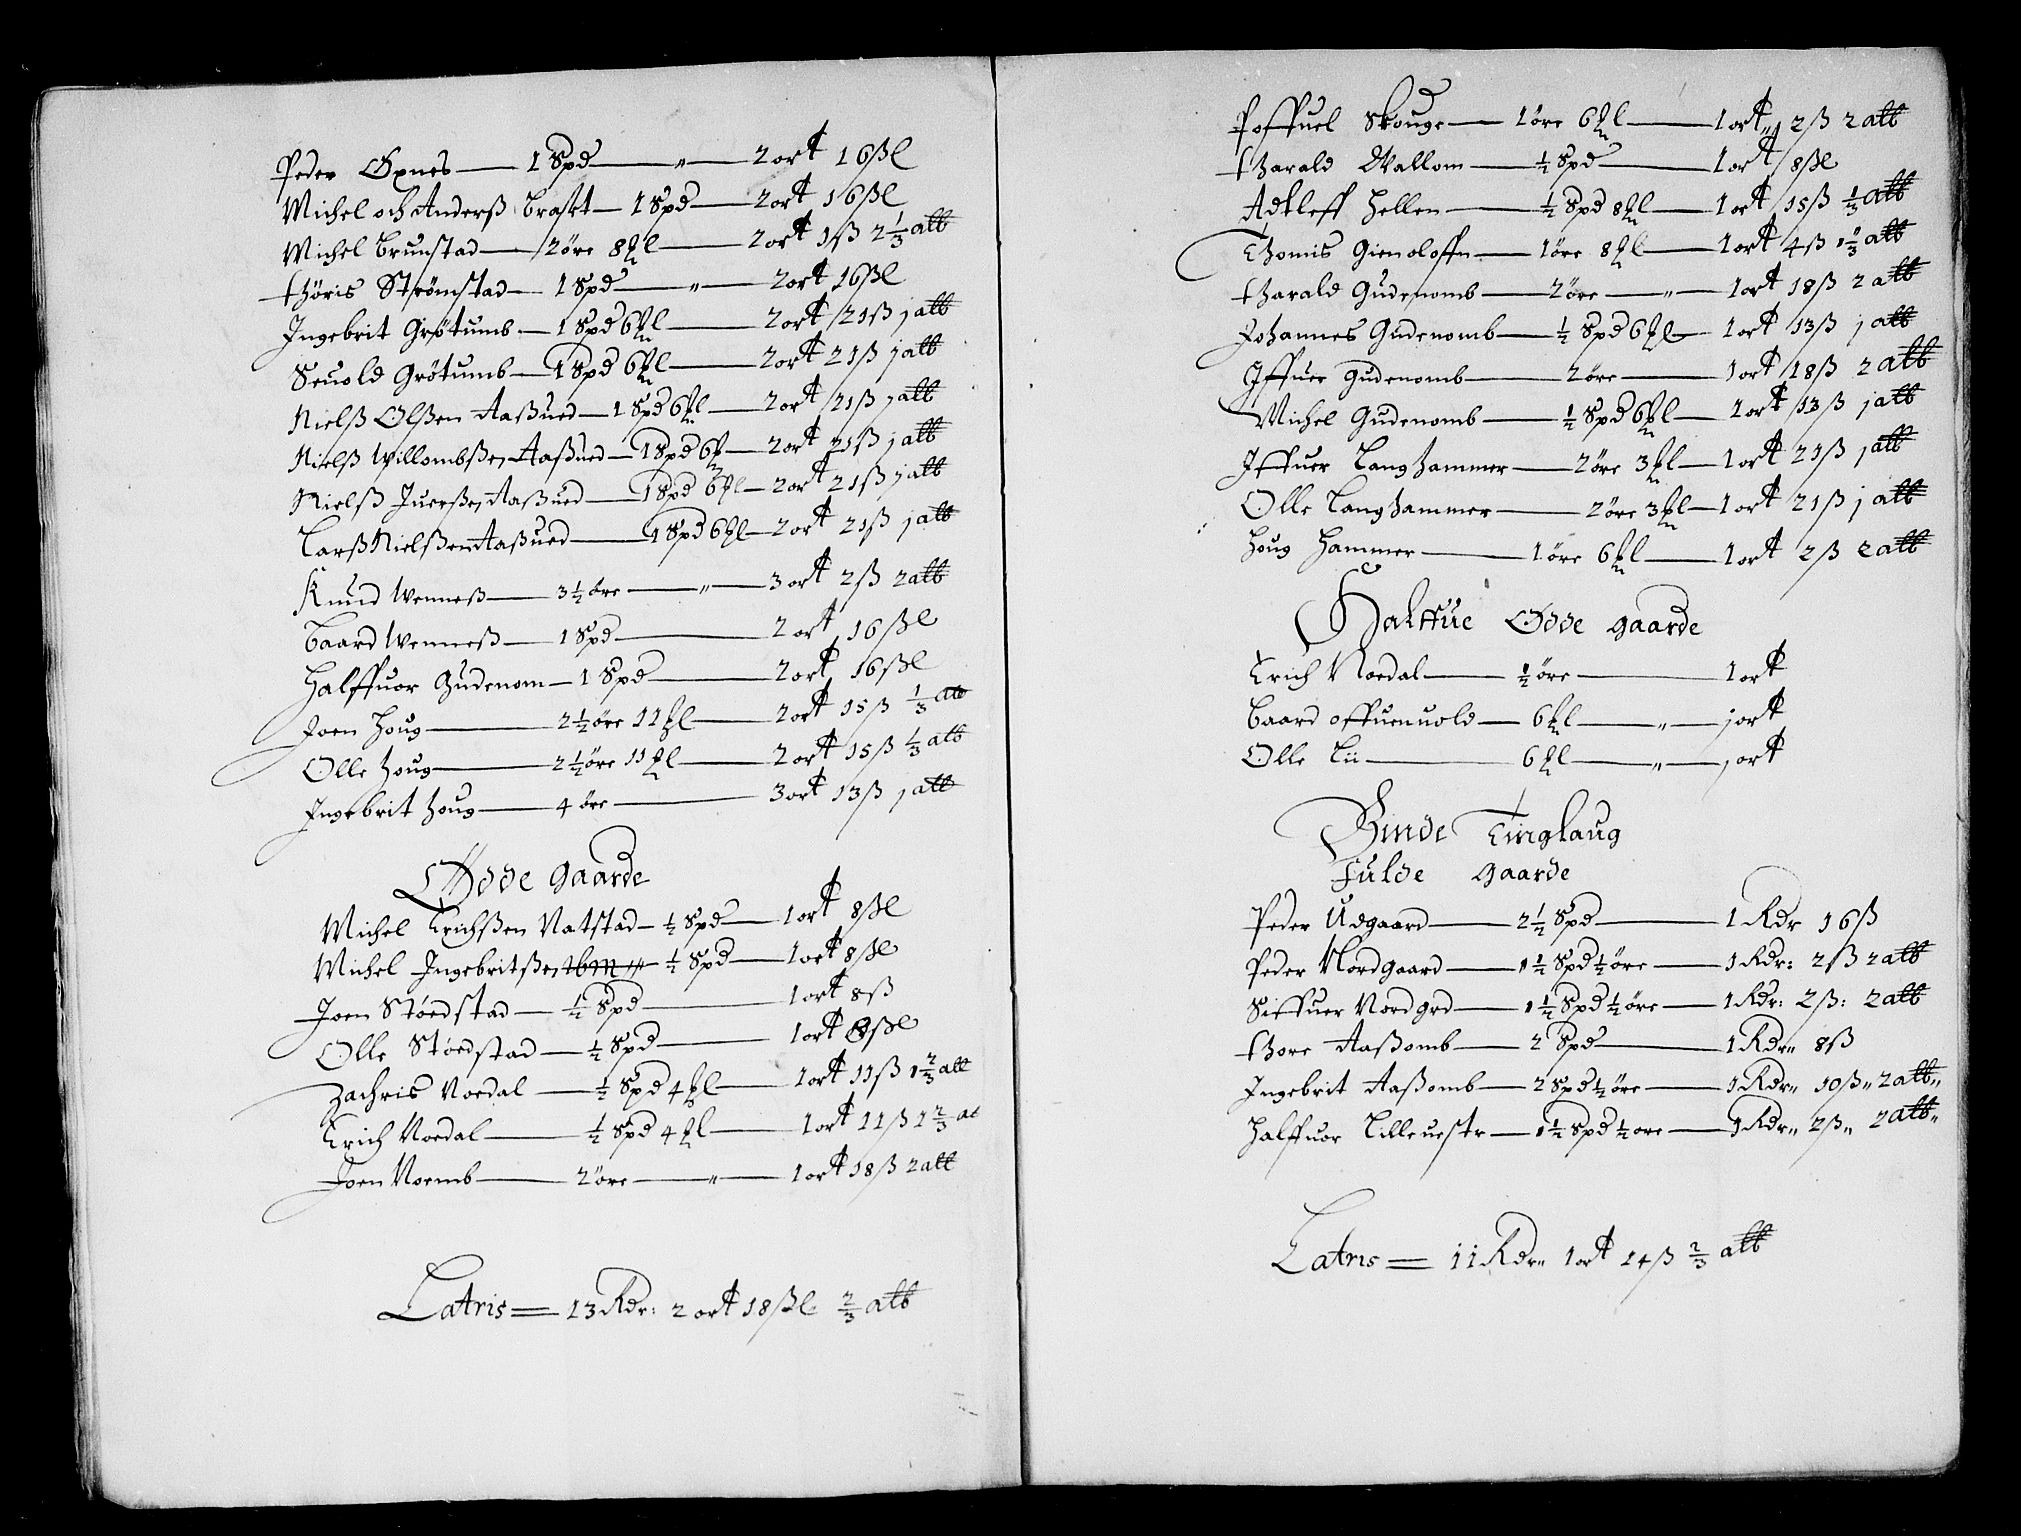 Peder Øxnes — 1 Spd — „ — 2 ort 16 ßl
Michel och Anderß Braset — 1 Spd — 2 ort 16 ßl
Michel Brunstad — 2 öre 8 ℔l — 2 ort 1 ß 2 1/3 alb
Thöris Strömstad — 1 Spd — „ — 2 ort 16 ßl
Ingebrit Grötumb — 1 Spd 6 ℔l — 2 ort 21 ß j alb
Seuold Grötumb — 1 Spd 6 ℔l — 2 ort 21 ß j alb
Nielß Olßen Aaßued — 1 Spd 6 ℔l — 2 ort 21 ß j alb
Nielß Willombßen Aaßued — 1 Spd 6 ℔ — 2 ort 21 ß j alb
Nielß Juerßen Aaßued — 1 Spd 6 ℔l — 2 ort 21 ß j alb
Larß Nielßen Aaßued — 1 Spd 6 ℔l — 2 ort 21 ß j alb
Knud Wenneß — 3 1/2 öre — „ — 3 ort 2 ß 2 alb
Baard Wenneß — 1 Spd — 2 ort 16 ßl
Halffuor Gudenom — 1 Spd — 2 ort 16 ßl
Joen Houg — 2 1/2 öre 11 ℔l — 2 ort 15 ß 1/3 alb
Olle Houg — 2 1/2 öre 11 ℔l — 2 ort 15 ß 1/3 alb
Ingebrit Houg — 4 öre — 3 ort 13 ß j alb
Ödde Gaarde
Michel Erichßen Natstad — 1/2 Spd — 1 ort 8 ßl
Michel Ingebritßen ibm — 1/2 Spd — 1 ort 8 ßl
Joen Stöedstad — 1/2 Spd — 1 ort 8 ß
Olle Stöedstad — 1/2 Spd — 1 ort 8 ßl
Zachris Noedal — 1/2 Spd 4 ℔l — 1 ort 11 ß 1 2/3 alb
Erich Noedal — 1/2 Spd 4 ℔l — 1 ort 11 ß 1 2/3 al
Joen Noemb — 2 öre — „ — 1 ort 18 ß 2 alb
Latris = 13 Rdr: 2 ort 18 ßl 2/3 alb
Poffuel Skouge — 1 öre 6 ℔l — 1 ort „ 2 ß 2 alb
Harald Wallom — 1/2 Spd — 1 ort 8 ßl
Adtleff Hellen — 1/2 Spd 8 ℔l — 1 ort 15 ß 1/3 alb
Thomis Gienoloffn — 1 öre 8 ℔l — 1 ort 4 ß 1 1/3 alb
Harald Gudenomb — 2 öre — „ — 1 ort 18 ß 2 alb
Johannes Gudenomb — 1/2 Spd 6 ℔l — 1 ort 13 ß j alb
Iffuer Gudenomb — 2 öre — 1 ort 18 ß 2 alb
Michel Gudenomb — 1/2 Spd 6 ℔l — 1 ort 13 ß j alb
Iffuer Langhammer — 2 öre 3 ℔l — 1 ort 21 ß j alb
Olle Langhammer — 2 öre 3 ℔l — 1 ort 21 ß j alb
Houg Hammer — 1 öre 6 ℔l — 1 ort 2 ß 2 alb
Halffue Ödde gaarde
Erich Noedal — 1/2 öre — 1 ort
Baard Offuenuold — 6 ℔l — „ — j ort
Olle Lii — 6 ℔l — „ — j ort
Binde Tinglaug
Fulde Gaarde
Peder Udgaard — 2 1/2 Spd — 1 Rdr 16 ß
Peder Nordgaard — 1 1/2 Spd 1/2 öre — 1 Rdr: 2 ß 2 alb
Siffuer Nordgrd — 1 1/2 Spd 1/2 öre — 1 Rdr: 2 ß: 2 alb
Thore Aaßomb — 2 Spd — 1 Rdr „ 8 ß
Ingebrit Aaßomb — 2 Spd 1/2 öre — 1 Rdr „ 10 ß „ 2 alb „
Halffuor Lilleuestr — 1 1/2 Spd 1/2 ore — 1 Rdr „ 2 ß „ 2 alb „
Latris = 11 Rdr „ 1 ort 14 ß 2/3 alb